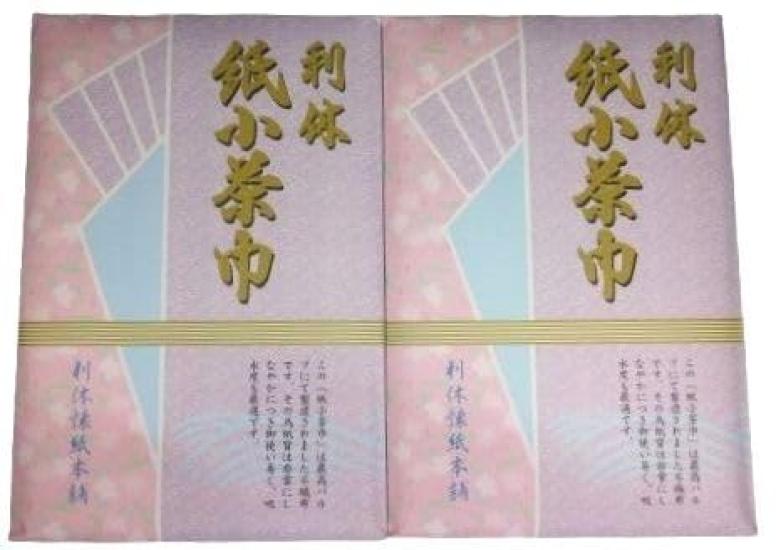 利休
紙小茶巾
この「紙小茶巾」は最高パル
プにて製造されました不織布
です。その為紙質は非常にし
なやかにつき御使い易く、吸
水度も最適です。
利休懐紙本舗
利休
紙小茶巾
この「紙小茶巾」は最高パル
プにて製造されました不織布
です。その為紙質は非常にし
なやかにつき御使い易く、吸
水度も最適です。
利休懐紙本舗